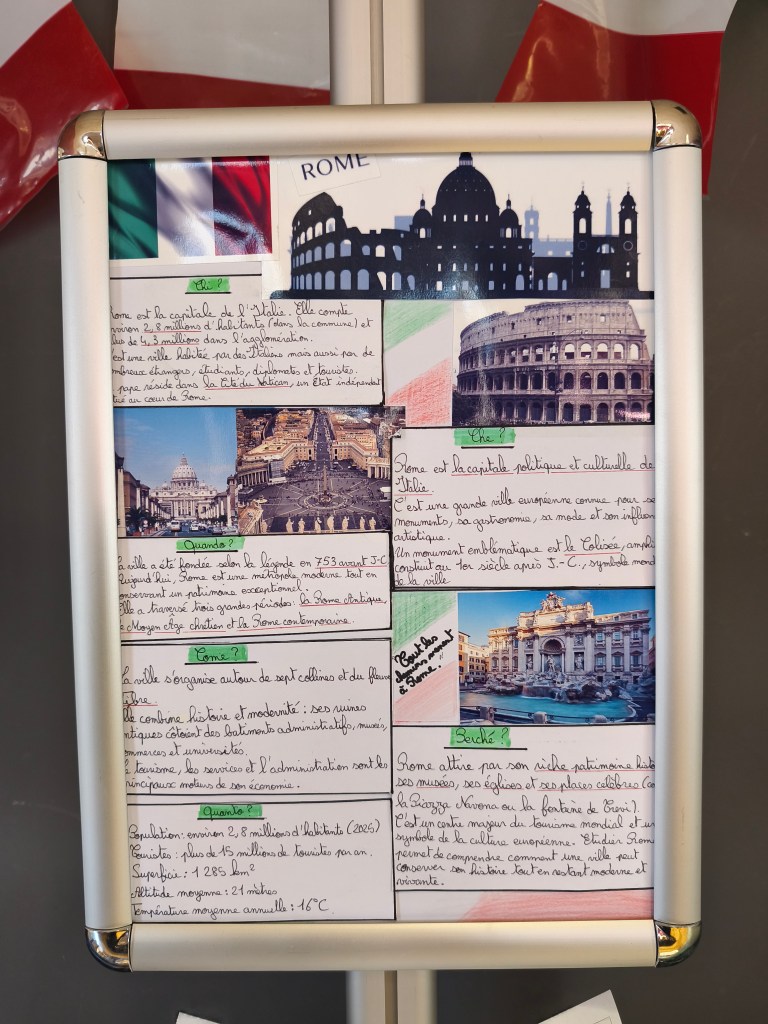 ROME
Chi ?
Rome est la capitale de l'Italie. Elle compte
nviron 2,8 millions d'habitants (dans la commune) et
lus de 4,3 millions dans l'agglomération.
'est une ville habitée par des Italiens mais aussi par de
mbreux étrangers, étudiants, diplomates et touristes.
pape réside dans la Cité du Vatican, un État indépendant
tué au cœur de Rome.
Che ?
Rome est la capitale politique et culturelle de
Italie.
C'est une grande ville européenne connue pour se
monuments, sa gastronomie, sa mode et son influen
artistique.
Un monument emblématique est le Colisée, amphi
construit au 1er siècle après J.-C., symbole mond
de la ville
Quando ?
a ville a été fondée selon la légende en 753 avant J-C
ujourd'hui, Rome est une métropole moderne tout en
onservant un patrimoine exceptionnel.
lle a traversé trois grandes périodes: la Rome Antique,
e Moyen Âge chrétien et la Rome contemporaine.
Come ?
a ville s'organise autour de sept collines et du fleuve
ibre.
lle combine histoire et modernité : ses ruines
ntiques côtoient des batiments administratifs, musées,
ommerces et universités.
e tourisme, les services et l'administration sont les
rincipaux moteurs de son économie.
Tout les
chemins mènent
à Rome."
Perché ?
Rome attire par son riche patrimoine histo
ses musées, ses églises et ses places célèbres (co
la Piazza Navona ou la fontaine de Trevi).
C'est un centre majeur du tourisme mondial et un
symbole de la culture européenne. Etudier Rom
permet de comprendre comment une ville peut
conserver son histoire tout en restant moderne et
vivante.
Quanto ?
Population: environ 2,8 millions d'habitants (2025)
Touristes : plus de 15 millions de touristes par an.
Superficie : 1 285 km²
Altitude moyenne : 21 mètres
Température moyenne annuelle : 16°C